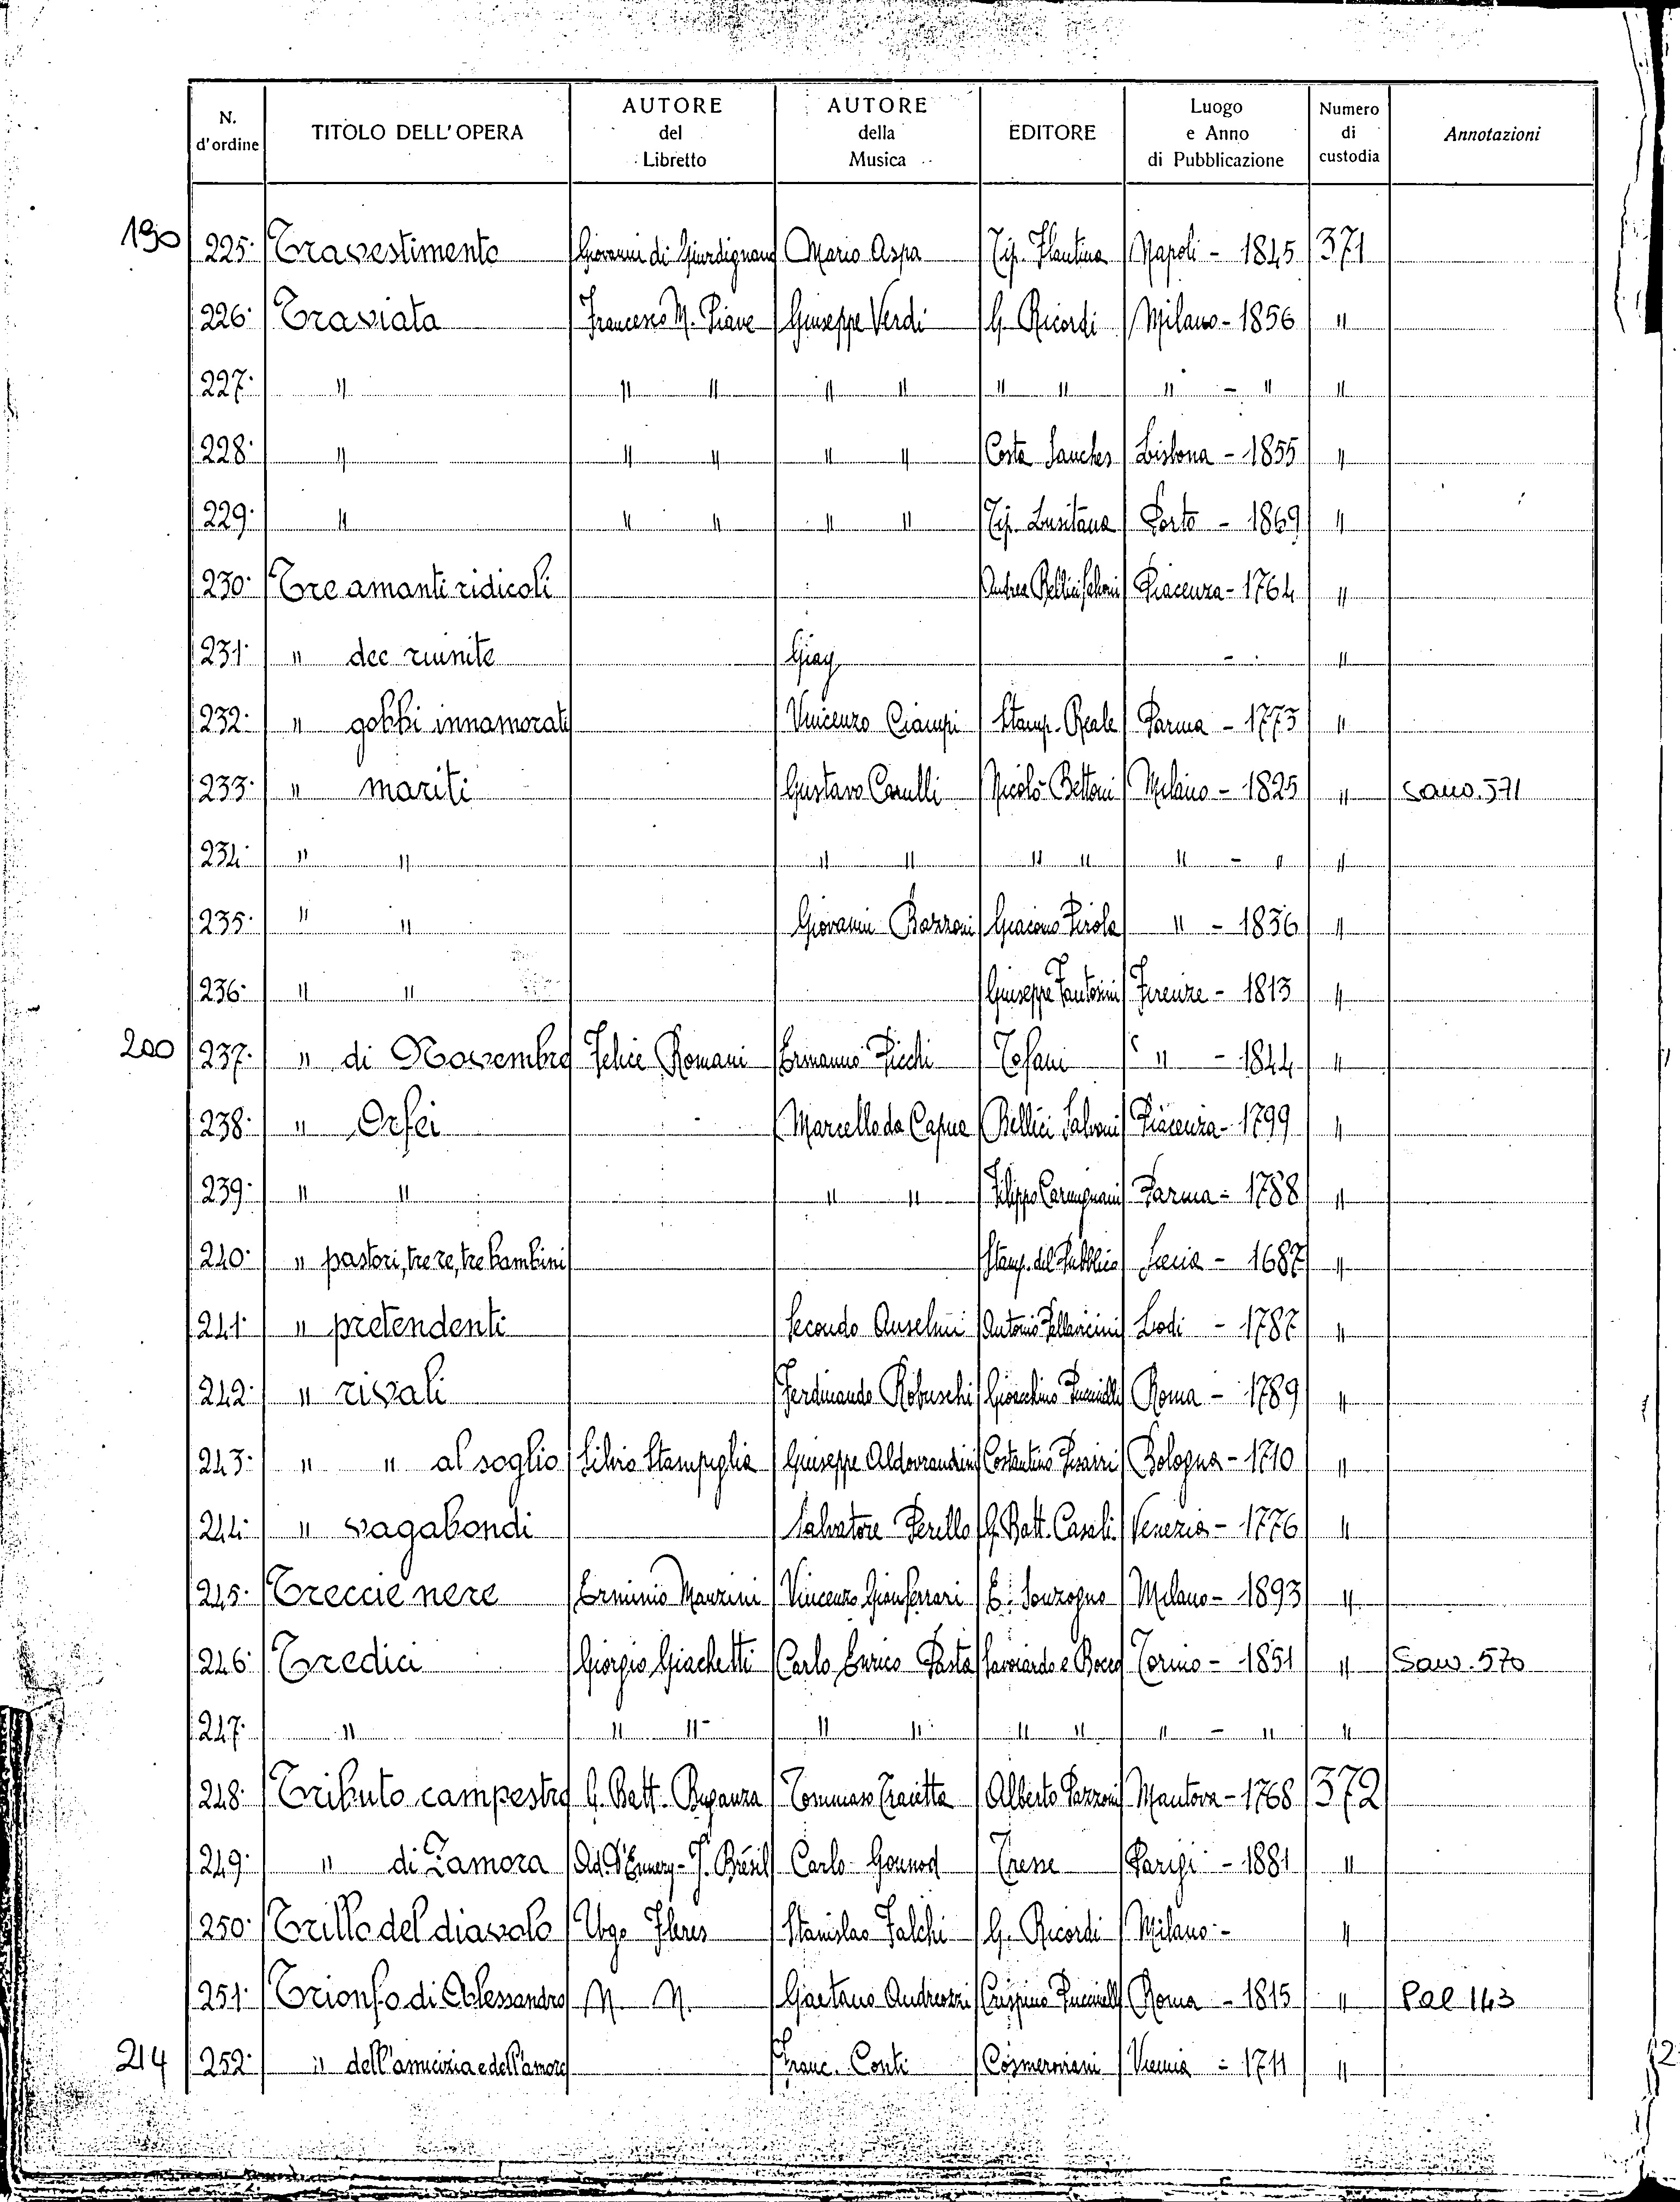 N. d'ordine | TITOLO DELL'OPERA | AUTORE del Libretto | AUTORE della Musica | EDITORE | Luogo e Anno di Pubblicazione | Numero di custodia | Annotazioni
190 225. Travestimento Giovanni di Giurdignano Mario Aspa Tip. Flautina Napoli - 1845 371
226. Traviata Francesco M. Piave Giuseppe Verdi G. Ricordi Milano - 1856 "
227. " " " " " " " " - " "
228. " " " " " Costa Sanches Lisbona - 1855 "
229. " " " " " Tip. Lusitana Porto - 1869 "
230. Tre amanti ridicoli Andrea Bellici Salvoni Piacenza - 1764 "
231. " dee riunite Giay - "
232. " gobbi innamorati Vincenzo Ciampi Stamp. Reale Parma - 1773 "
233. " mariti Gustavo Carulli Nicolò Bettoni Milano - 1825 " Sanv. 571
234. " " " " " " " - " "
235. " " Giovanni Bazzoni Giacomo Pirola " - 1836 "
236. " " Giuseppe Fantosini Firenze - 1813 "
200 237. " di Novembre Felice Romani Ermanno Picchi Tofani " - 1844 "
238. " Orfei Marcello da Capua Bellici Salvoni Piacenza - 1799 "
239. " " " " Filippo Carmignani Parma - 1788 "
240. " pastori, tre re, tre bambini Stamp. del Pubblico - 1687 "
241. " pretendenti Secondo Anselmi Antonio Pallavicini Lodi - 1787 "
242. " rivali Ferdinando Robuschi Gioachino Puccinelli Roma - 1789 "
243. " " al soglio Silvio Stampiglia Giuseppe Aldovrandini Costantino Pisarri Bologna - 1710 "
244. " vagabondi Salvatore Perillo G. Batt. Casali Venezia - 1776 "
245. Treccie nere Erminio Manzini Vincenzo Gianferrari E. Sonzogno Milano - 1893 "
246. Tredici Giorgio Giachetti Carlo Enrico Pasta Savoiardo e Bocco Torino - 1851 " Sanv. 570
247. " " " " " " " " - " "
248. Tributo campestre G. Batt. Buganza Tommaso Traietta Alberto Pazzoni Mantova - 1768 372
249. " di Zamora Ad. d'Ennery - J. Brésil Carlo Gounod Tresse Parigi - 1881 "
250. Trillo del diavolo Ugo Fleres Stanislao Falchi G. Ricordi Milano - "
251. Trionfo di Alessandro N. N. Gaetano Andreozzi Crispino Puccinelli Roma - 1815 " Pal 143
214 252. " dell'amicizia e dell'amore Franc. Conti Cosmeroviani Vienna - 1711 "